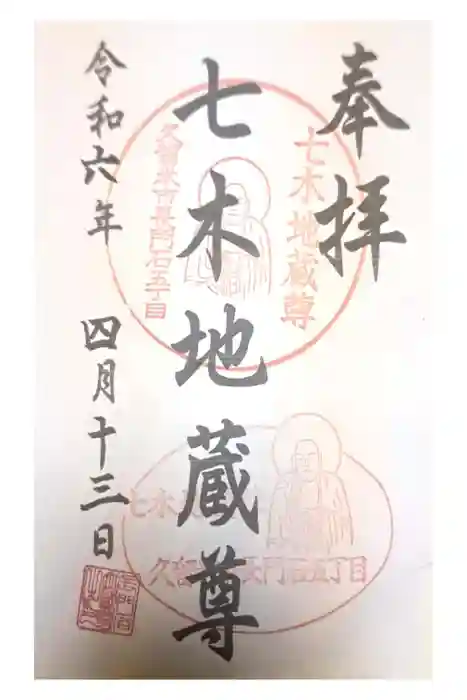 奉拝
七木地蔵尊
令和六年 四月十三日
七木地蔵尊
久留米市長門石五丁目
七木
久留 長門石五丁目